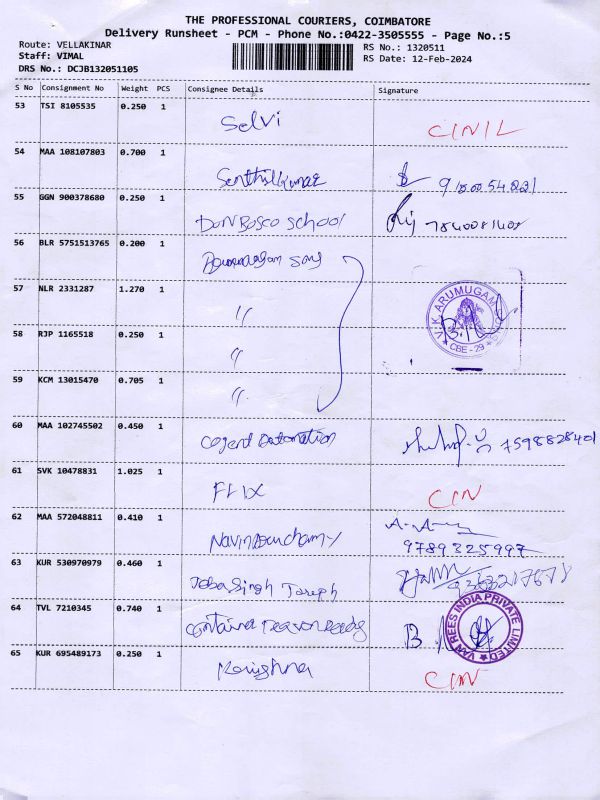 THE PROFESSIONAL COURIERS, COIMBATORE
Delivery Runsheet - PCM - Phone No.:0422-3505555 - Page No.:5
Route: VELLAKINAR
Staff: VIMAL
DRS No.: DCJB132051105
RS No.: 1320511
RS Date: 12-Feb-2024
S No Consignment No Weight PCS Consignee Details Signature
53 TSI 8105535 0.250 1 Selvi
54 MAA 108107803 0.700 1 Senthilkumar
55 GGN 900378680 0.250 1 DON BOSCO School
56 BLR 5751513765 0.200 1
57 NLR 2331287 1.270 1 "
V.K. ARUMUGAM
CBE - 29
58 RJP 1165518 0.250 1 "
59 KCM 13015470 0.705 1 "
60 MAA 102745502 0.450 1 Cogent 7598828401
61 SVK 10478831 1.025 1 FLIX CIN
62 MAA 572048811 0.410 1
9789325997
63 KUR 530970979 0.460 1 JebaSingh Joseph
64 TVL 7210345 0.740 1
VAN REES INDIA PRIVATE LIMITED
65 KUR 695489173 0.250 1 CIN